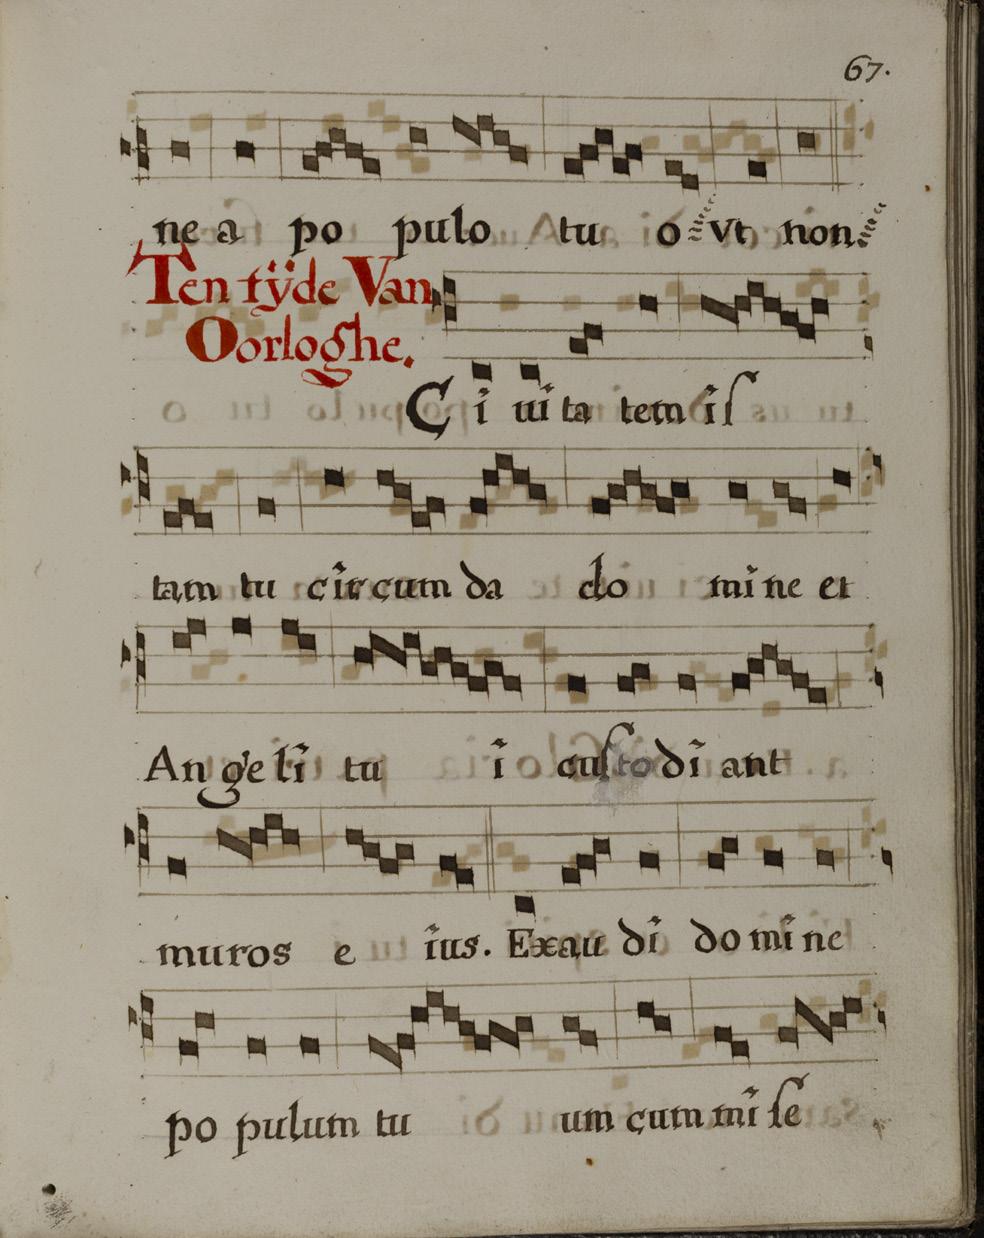 67.
ne a po pulo tu o vt non
Ten tÿde Van
Oorloghe.
Ci ui ta tem is
tam tu circum da do mi ne et
An ge li tu i custo di ant
muros e ius. Exau di do mi ne
po pulum tu um cum mi se